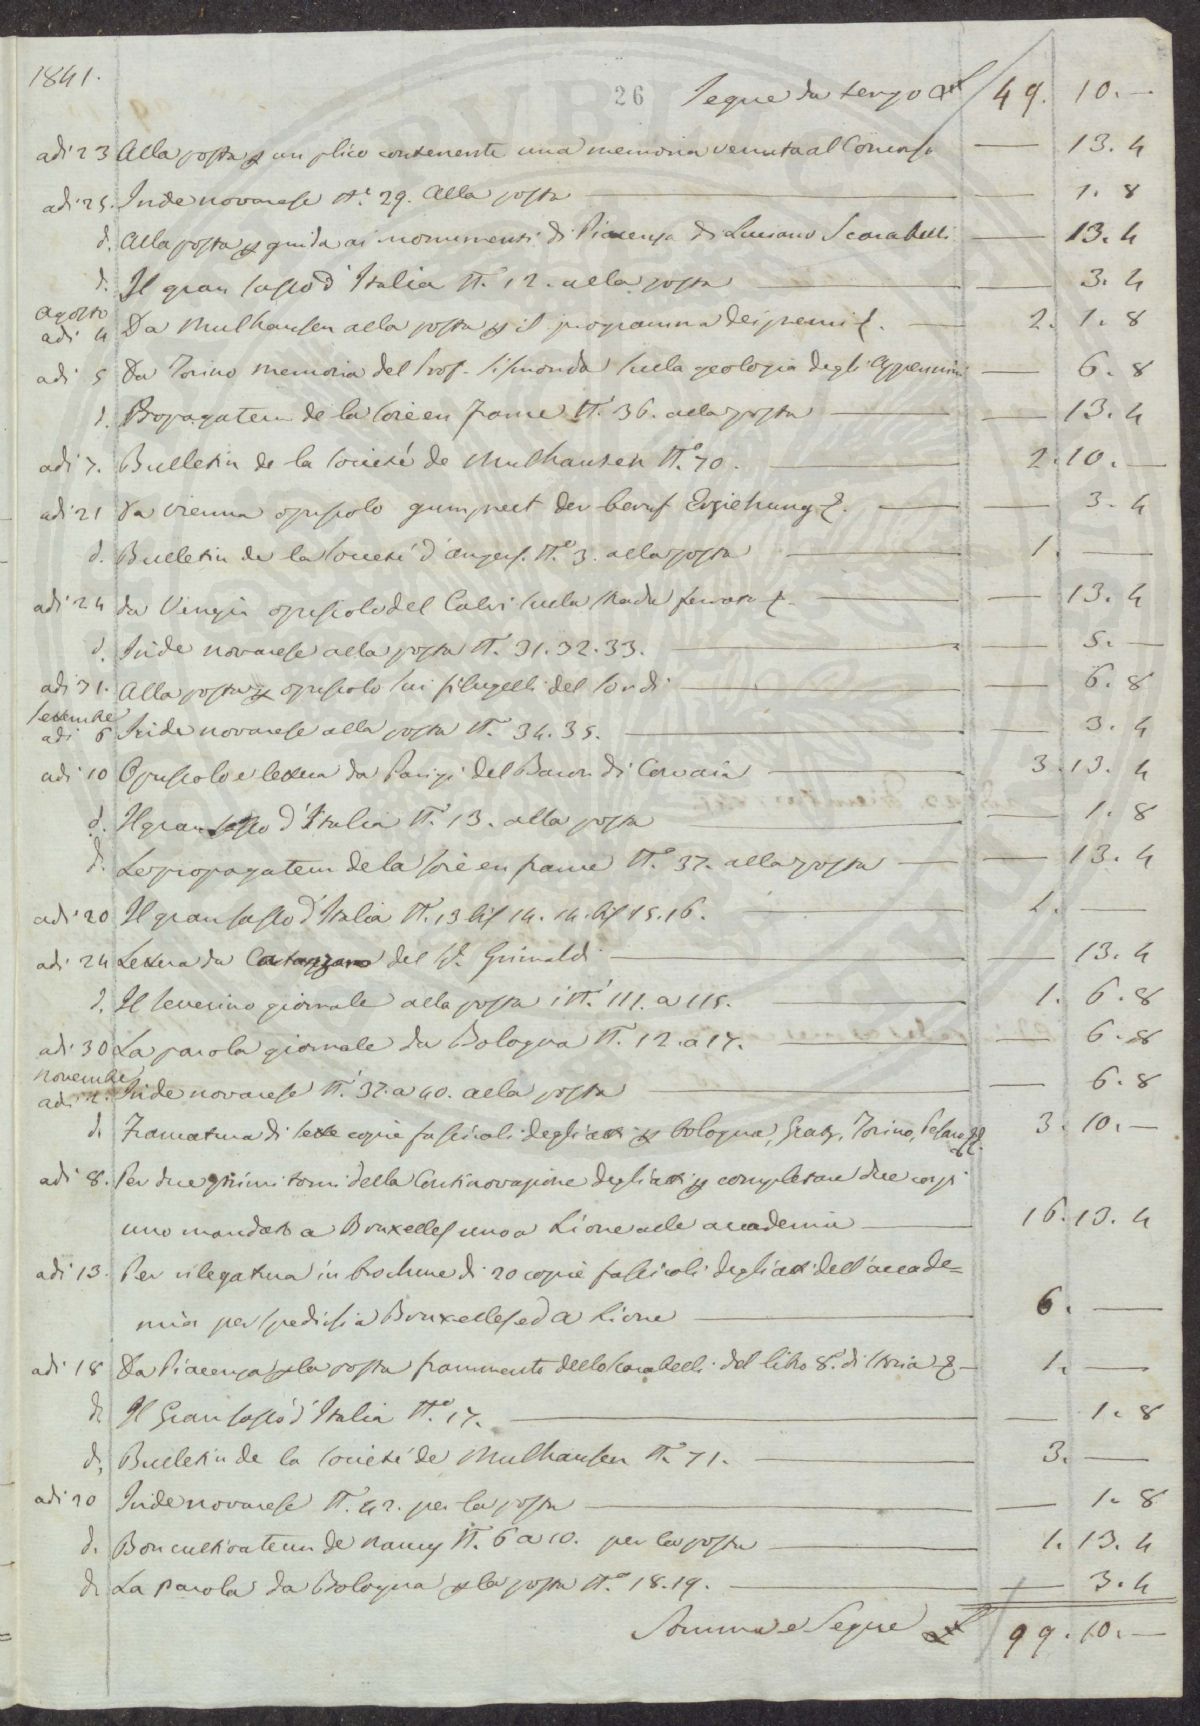 1841.
26
Segue da tergo £ 49. 10. —
adi 23 Alla posta p un plico contenente una memoria venuta al Concorso — 13. 4
adi 25. Iride novarese N.° 29. alla posta — 1. 8
d. Alla posta p guida ai monumenti di Piacenza di Luciano Scarabelli — 13. 4
d. Il gran sasso d'Italia N. 12. alla posta — 3. 4
agosto
adi 4 Da Mulhausen alla posta p il programma dei premi 2. 1. 8
adi 5 Da Torino memoria del Prof. Sismonda sulla geologia degli Appennini — 6. 8
d. Propagateur de la soie en France N. 36. alla posta — 13. 4
adi 7. Bulletin de la societé de Mulhausen N.° 70. 2. 10. —
adi 21 Da Vienna opuscolo der beruf Erziehung — 3. 4
d. Bulletin de la societé d'Angers. N.° 3. alla posta 1. —
adi 24 da opuscolo del Calvi sulla strada ferrata — 13. 4
d. Iride novarese alla posta N. 31. 32. 33. — 5. —
adi 31. Alla posta p opuscolo sui filugelli del Sordi — 6. 8
settembre
adi 6 Iride novarese alla posta N. 34. 35. — 3. 4
adi 10 Opuscolo e lettera da Parigi del Baron di Corvaia 3. 13. 4
d. Il gran sasso d'Italia N. 13. alla posta — 1. 8
d. Le propagateur de la soie en france N.° 37. alla posta — 13. 4
adi 20 Il gran sasso d'Italia N. 13 bis 14. 14. bis 15. 16. 1. —
adi 24 Lettera da Catanzaro del Sr. Grimaldi — 13. 4
d. Il severino giornale alla posta i N.i 111. a 115. 1. 6. 8
adi 30 La parola giornale da Bologna N. 12. a 17. — 6. 8
novembre
adi 2. Iride novarese N.i 37. a 40. alla posta — 6. 8
d. Francatura di sette copie fascicoli degli atti p bologna, Gratz, Torino, Pesaro 3. 10. —
adi 8. Per due primi tomi della Continovazione degli atti p completare due corpi
uno mandato a Bruxelles uno a Lione alle accademie 16. 13. 4
adi 13. Per rilegatura in brochure di 20 copie fascicoli degli atti dell'accade=
mia per spedirsi a Bruxelles ed a Lione 6. —
adi 18 Da Piacenza p la posta frammento dello Scarabelli del libro 8.° di storia 1. —
d. Il Gran sasso d'Italia N.° 17. — 1. 8
d. Bulletin de la societé de Mulhausen N. 71. 3. —
adi 20 Iride novarese N. 42. per la posta — 1. 8
d. Bon cultivateur de nancy N. 6 a 10. per la posta 1. 13. 4
d. La Parola da Bologna p la posta N.° 18. 19. — 3. 4
Somma e Segue £ 99. 10. —